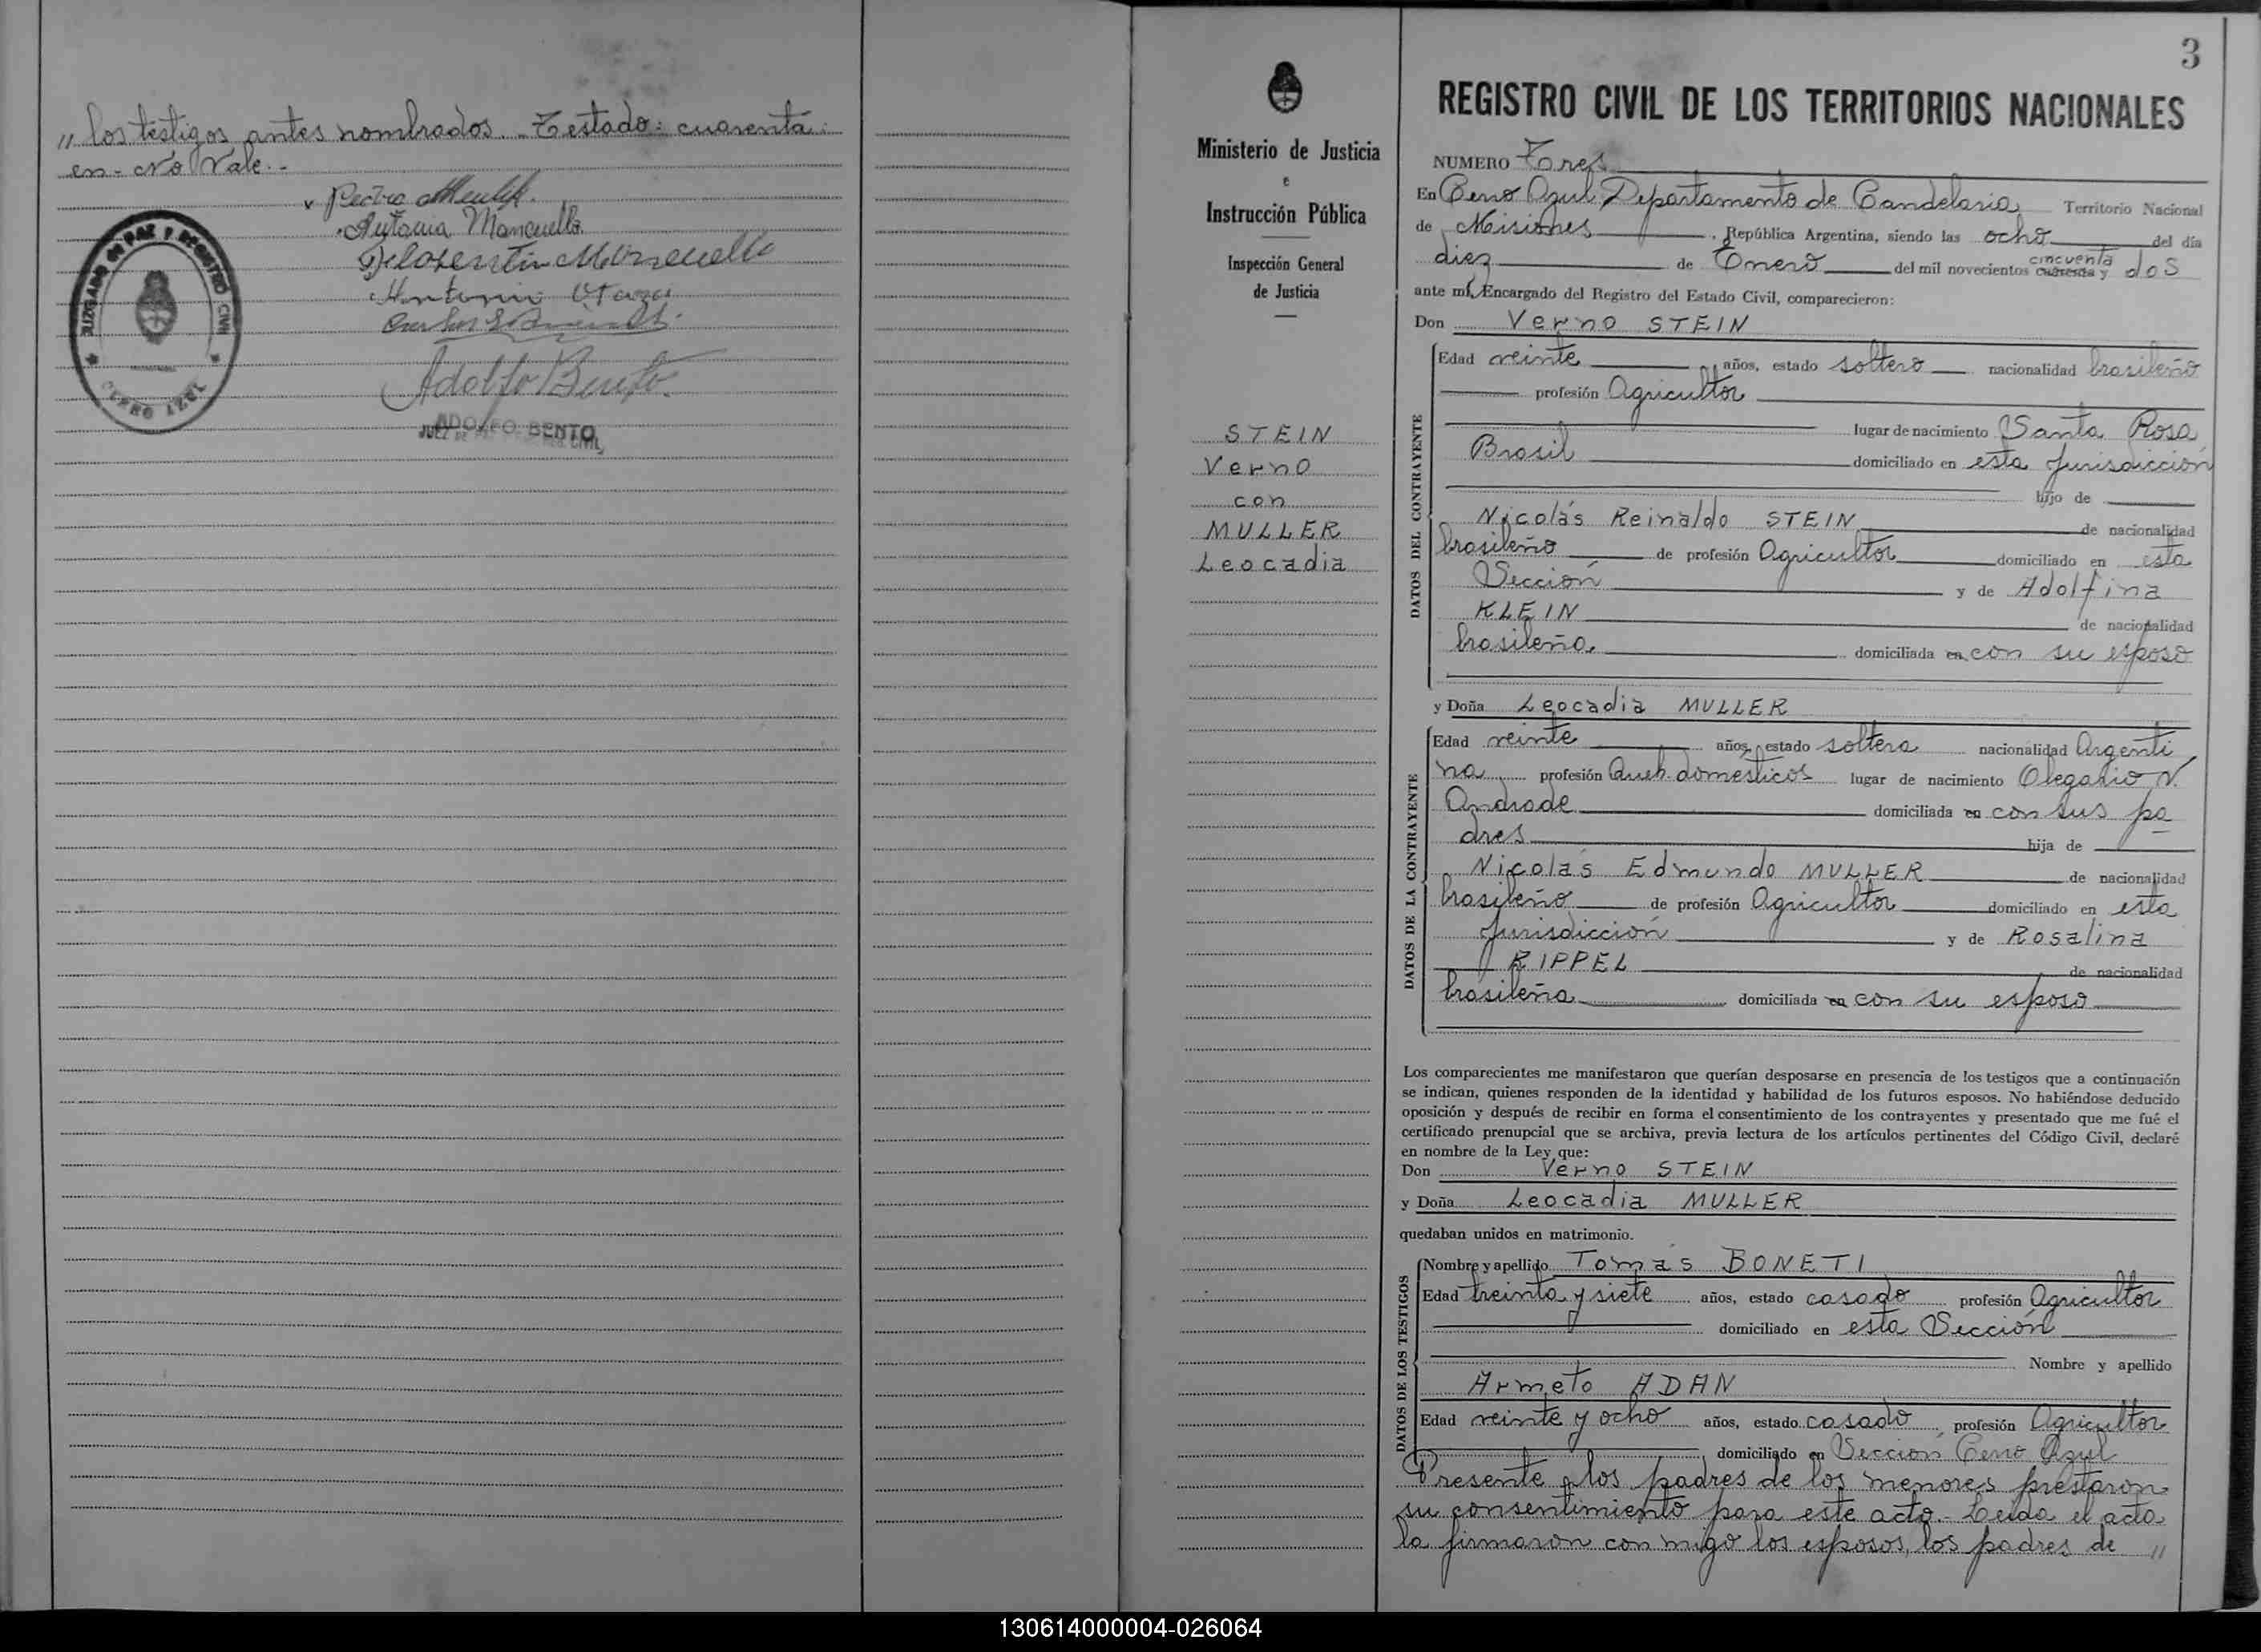 „ los testigos antes nombrados. - Testado: cuarenta:
en - No Vale. -
Antonia Mancuello
Adolfo Bento.
ADOLFO BENTO
JUZGADO DE PAZ Y REGISTRO CIVIL
CERRO AZUL
Ministerio de Justicia
e
Instrucción Pública
Inspección General
de Justicia
STEIN
Verno
con
MULLER
Leocadia
3
REGISTRO CIVIL DE LOS TERRITORIOS NACIONALES
NUMERO Tres
En Cerro Azul Departamento de Candelaria Territorio Nacional
de Misiones, República Argentina, siendo las ocho del día
diez de Enero del mil novecientos cuarenta y cincuenta dos
ante mí, Encargado del Registro del Estado Civil, comparecieron:
Don Verno STEIN
DATOS DEL CONTRAYENTE
Edad veinte años, estado soltero nacionalidad brasileño
profesión Agricultor
lugar de nacimiento Santa Rosa
Brasil domiciliado en esta Jurisdicción
hijo de
Nicolás Reinaldo STEIN de nacionalidad
brasileño de profesión Agricultor domiciliado en esta
Sección y de Adolfina
KLEIN de nacionalidad
brasileña domiciliada en con su esposo
y Doña Leocadia MULLER
DATOS DE LA CONTRAYENTE
Edad veinte años, estado soltera nacionalidad Argenti
na profesión Queh. domésticos lugar de nacimiento Olegario V.
Andrade domiciliada en con sus pa
dres hija de
Nicolás Edmundo MULLER de nacionalidad
brasileño de profesión Agricultor domiciliado en esta
Jurisdicción y de Rosalina
RIPPEL de nacionalidad
brasileña domiciliada en con su esposo
Los comparecientes me manifestaron que querían desposarse en presencia de los testigos que a continuación
se indican, quienes responden de la identidad y habilidad de los futuros esposos. No habiéndose deducido
oposición y después de recibir en forma el consentimiento de los contrayentes y presentado que me fué el
certificado prenupcial que se archiva, previa lectura de los artículos pertinentes del Código Civil, declaré
en nombre de la Ley que:
Don Verno STEIN
y Doña Leocadia MULLER
quedaban unidos en matrimonio.
DATOS DE LOS TESTIGOS
Nombre y apellido Tomás BONETI
Edad treinta y siete años, estado casado profesión Agricultor
domiciliado en esta Sección
Nombre y apellido
Armeto ADAN
Edad veinte y ocho años, estado casado profesión Agricultor
domiciliado en Sección Cerro Azul
Presente los padres de los menores prestaron
su consentimiento para este acto. - Leida el acta
la firmaron con migo los esposos, los padres de „
130614000004-026064